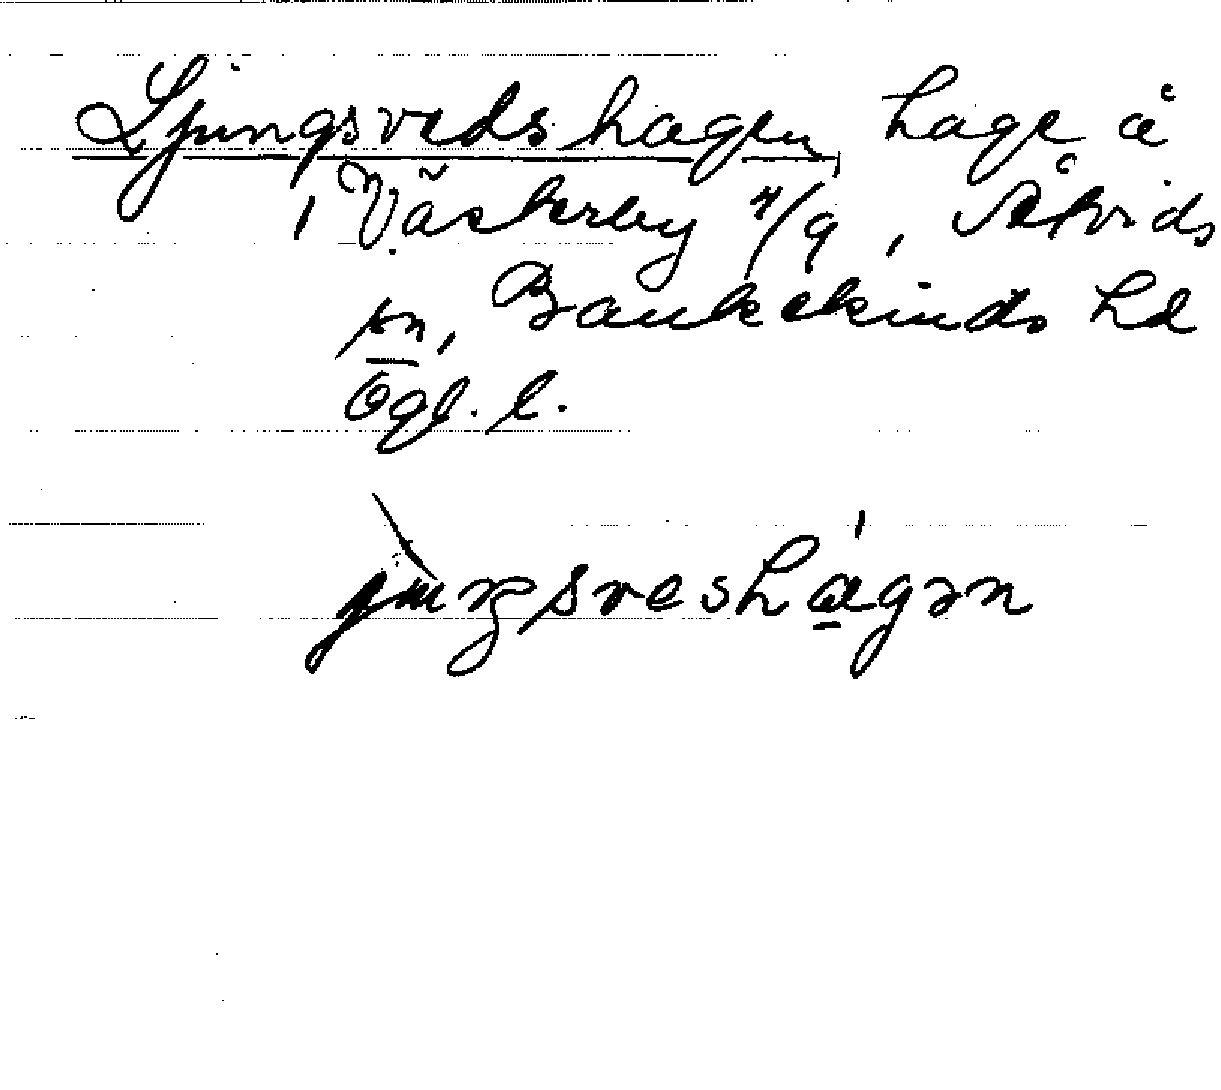 Ljungsvedshagen, hage å
Väskerby 4/9, Åtvids
sn, Bankekinds hd
Ögl. l.
juŋsveshagən